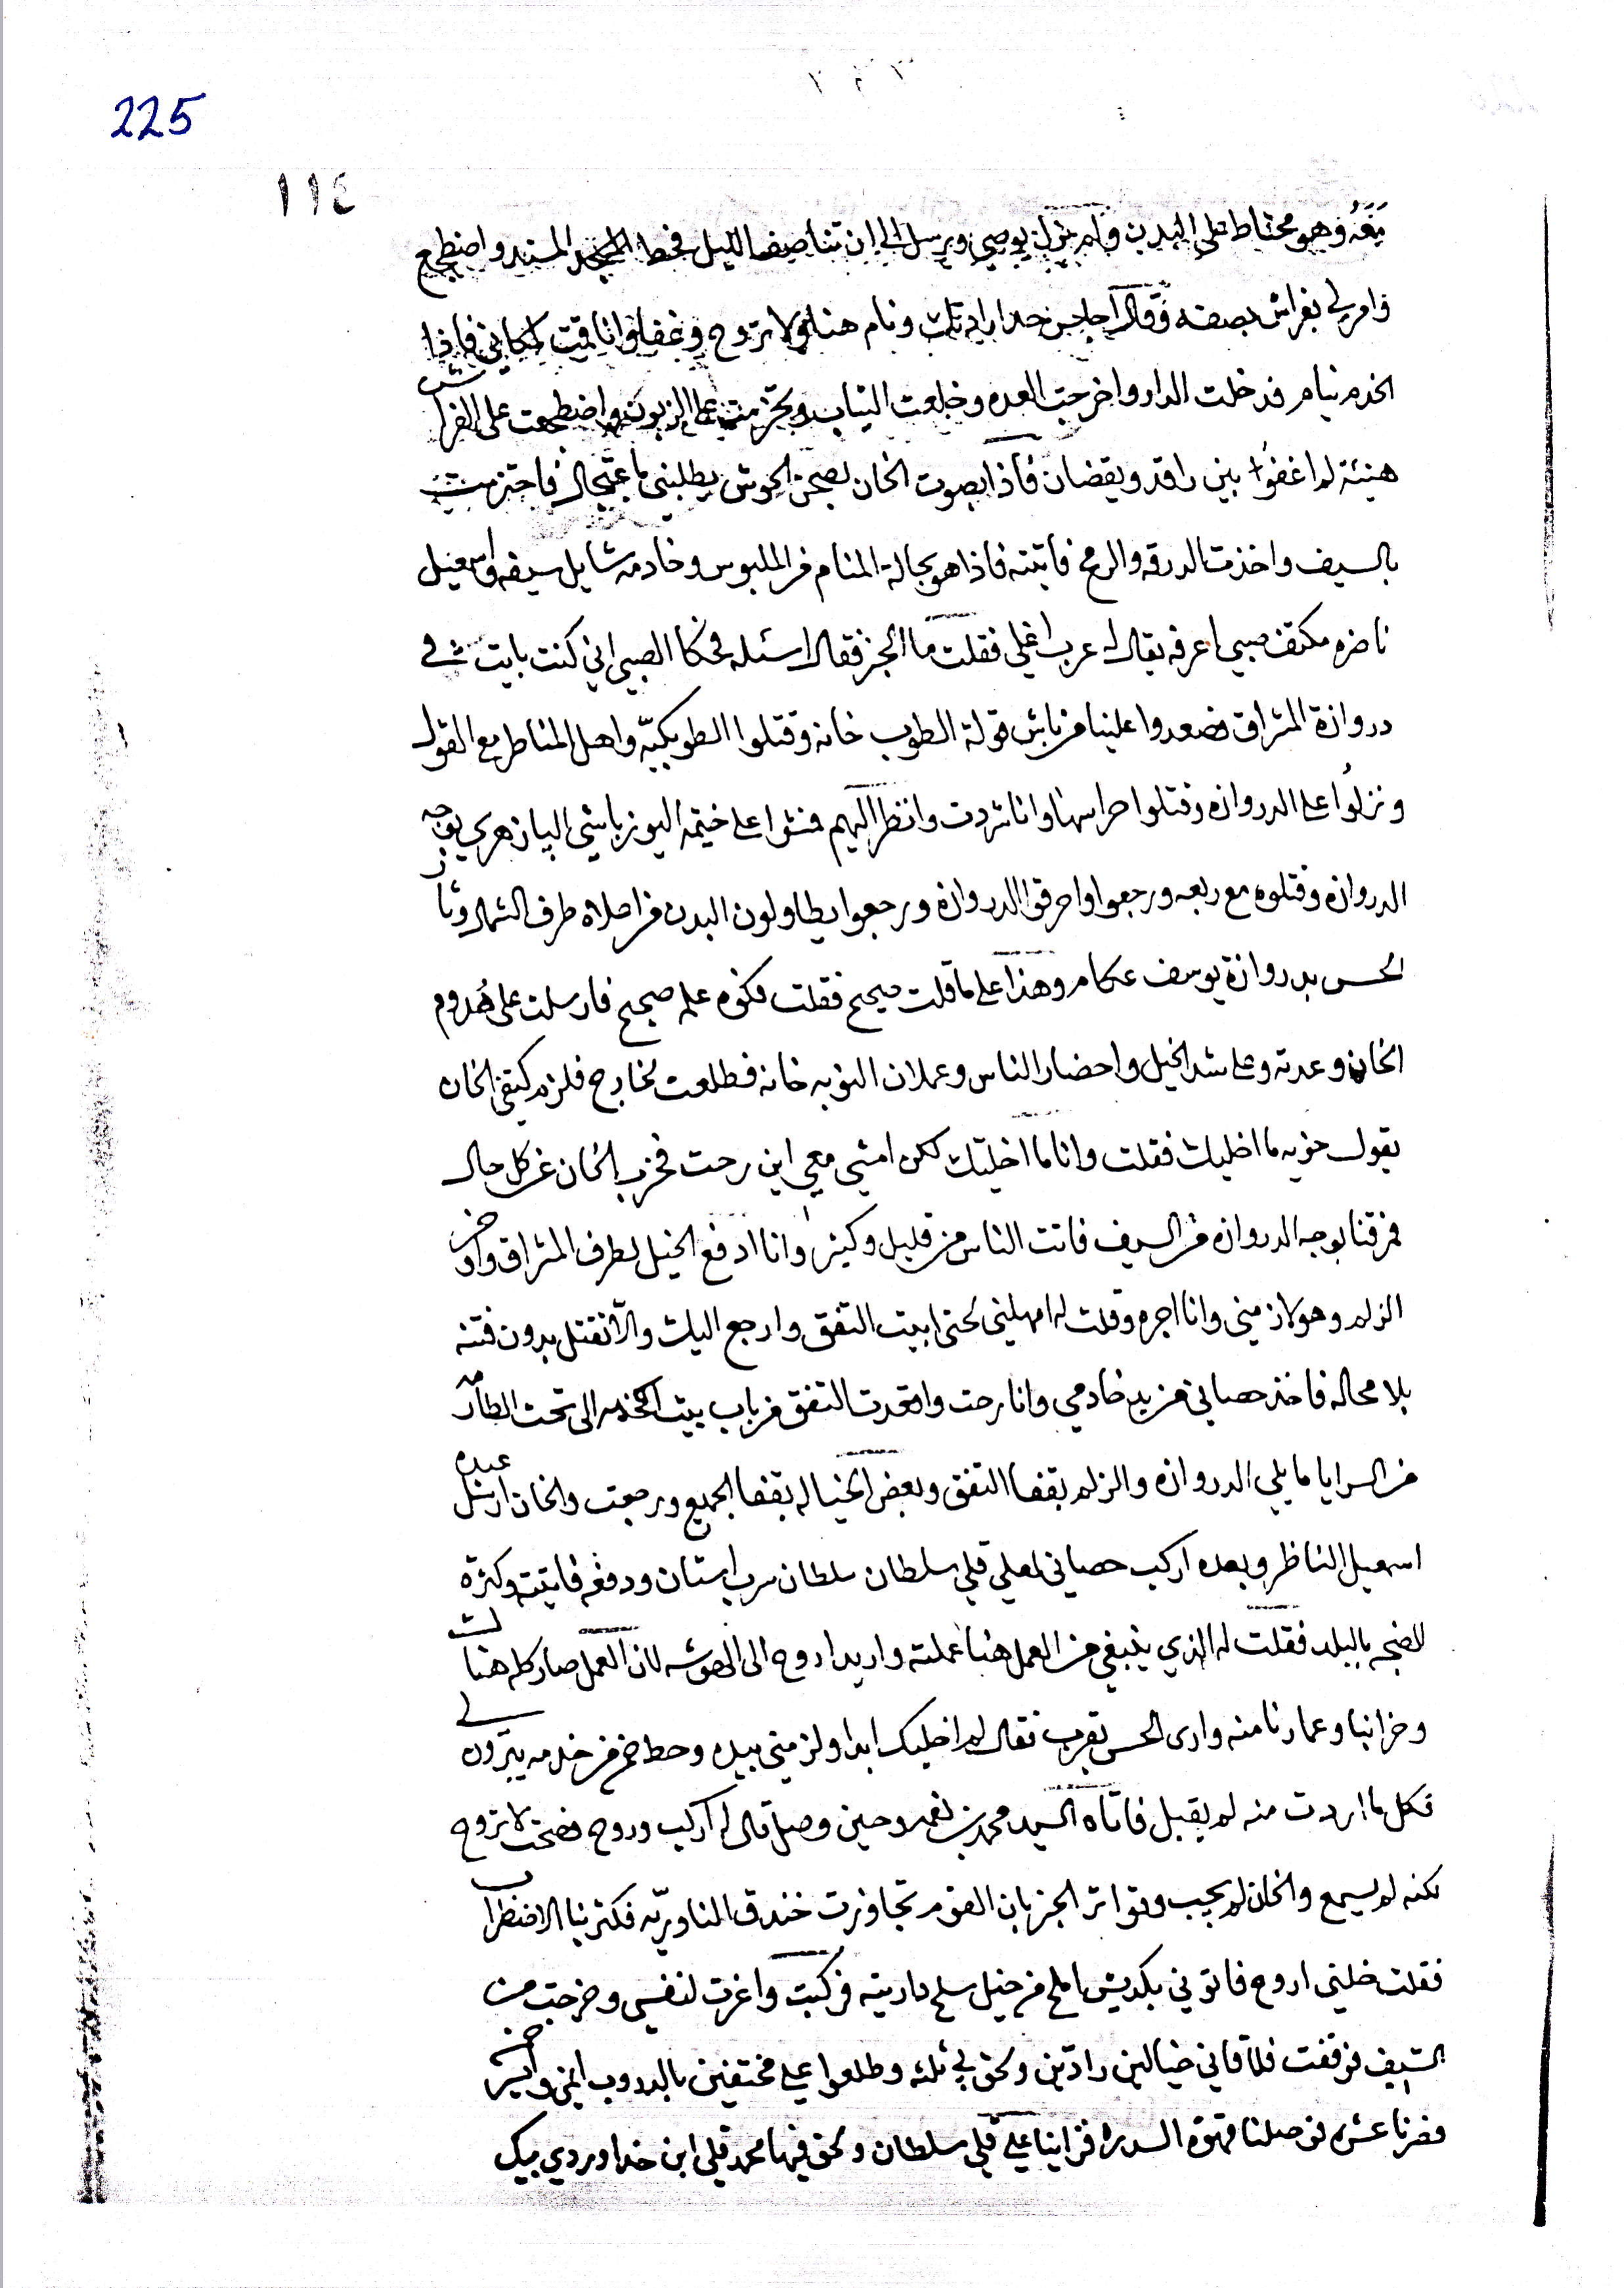 225
١١٤
معه وهو محتاط على البدن ولم يزل يوصي ويرسل الى ان تناصف الليل فحط المسند واضطجع
وامر لي بفراش بصفه وقال اجلس ونام هنا ولا تروح وغفل وانا قمت لمكاني فاذا
الخدم نيام فدخلت الدار واخرجت العده وخلعت الثياب وتحزمت على الزبون واضطجعت على الفراش
هنيئة لم اغفو بين راقد ويقضان فاذا بصوت الخان بصحن الحوش يطلبني باعتجال فاحتزمت
بالسيف واخذت الدرقه والرمح فاتيته فاذا هو بحالة المنام من الملبوس وخادمه شايل سيفه واسمعيل
ناضره مكتف صبي اعرفه يقال له عرب اغلي فقلت ما الخبر فقال اسئله فحكا الصبي اني كنت بايت في
دروازة المشراق فصعدوا علينا من باش قولة الطوب خانه وقتلوا الطوبكيّه واهل المناطر مع القول
ونزلوا على الدروازه وقتلوا حراسها وانا شردت وانظر اليهم فنثوا على خيمة اليوزباشي البيازهري بوجه
الدروازه وقتلوه مع ربعه ورجعوا واحرقوا الدروازه ورجعوا يطاولون البدن من اعلاه طرف الشمال وثار
الحس بدروازة يوسف عكام وهذا على ما قلت صحيح فقلت فكوه علمه صحيح فارسلت على هدوم
الخان وعدته وعلى شد الخيل واحضار الناس وعملان النوبه خانه فطلعت لخارج فلزم كتفي الخان
يقول خويه ما اخليك فقلت وانا ما اخليك لكن امشي معي اين رحت فخرب الخان عن كل حال
فمرقنا بوجه الدروازه من السيف فاتت الناس من قليل وكثير وانا ادفع الخيل لطرف المشراق واوخر
الزلم وهو لازمني وانا اجره وقلت له امهلني حتى ابيت التفق وارجع اليك والّا نقتل بدون فتنه
بلا محاله فاخذ حصاني من يد خادمي وانا رحت واقعدت التفق من باب بيت الخدمه الى تحت الطارمه
من السرايا ما يلي الدروازه والزلم بقفا التفق وبعض الخياله بقفا الجميع ورجعت والخان ارسل عبده
اسمعيل الناظر وبعده اركب حصاني لعلي قلي سلطان سلطان سراب استان ودفعه فاتيته وكثرة
الضجه بالبلد فقلت له الذي ينبغي من العمل هنا عملته واريد اروح الى الحوشه لان العمل صار كله هناك
وخزاننا وعمارنا منه وارى الحس يقرب فقال لم اخليك ابدا ولزمني بيده وحط خم من خدمه يبرّون لي
فكل ما اردت منه لم يقبل فاتاه السيد محمد بن نعمه وحين وصل قال له اركب وروح فضحت لا تروح
لكنه لم يسمع والخان لم يجيب وتواتر الخبر بان القوم تجاوزت خندق المناويّه فكثر بنا الاضطراب
فقلت خليني اروح فاتوني بكديش املح من خيل سلح داريته فركبت واغرت لنفسي وخرجت من
السيف فوقفت فلاقاني خيالين رادّين ولحق بي ثلثه وطلعوا علي مختفين بالدروب اثني واخر
فصرنا عشره فوصلنا قهوة السدره فراينا علي قلي سلطان ولحق فيها محمد قلي ابن خداوردي بيك